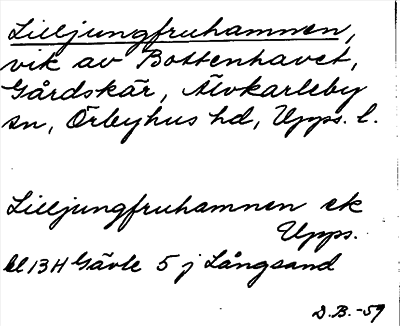 Lilljungfruhamnen,
vik av Bottenhavet,
Gårdskär, Älvkarleby
sn, Örbyhus hd, Upps. l.
Lilljungfruhamnen ek
Upps.
bl 13H Gävle 5 j Långsand
D.B. -59